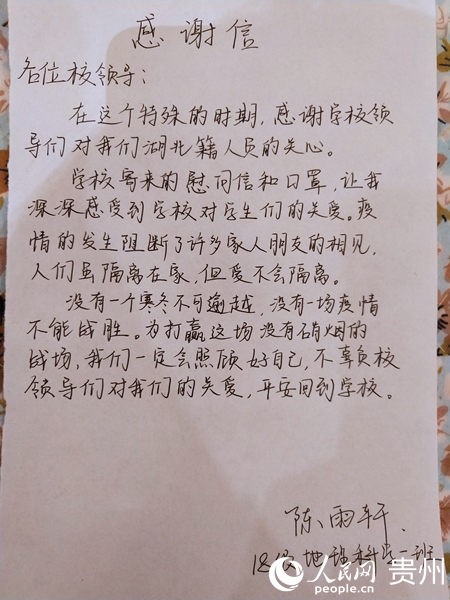 感谢信
各位校领导：
在这个特殊的时期，感谢学校领
导们对我们湖北籍人员的关心。
学校寄来的慰问信和口罩，让我
深深感受到学校对学生们的关爱。疫
情的发生阻断了许多家人朋友的相见，
人们虽隔离在家，但爱不会隔离。
没有一个寒冬不可逾越，没有一场疫情
不能战胜。为打赢这场没有硝烟的
战场，我们一定会照顾好自己，不辜负校
领导们对我们的关爱，平安回到学校。
陈雨轩
18级地理科学一班
人民网 贵州
people.cn